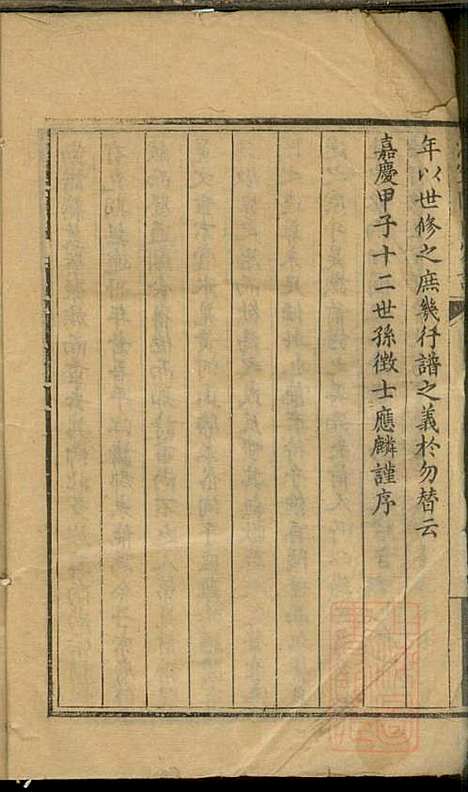 年以世修之庶幾行譜之義於勿替云
嘉慶甲子十二世孫徴士應麟謹序